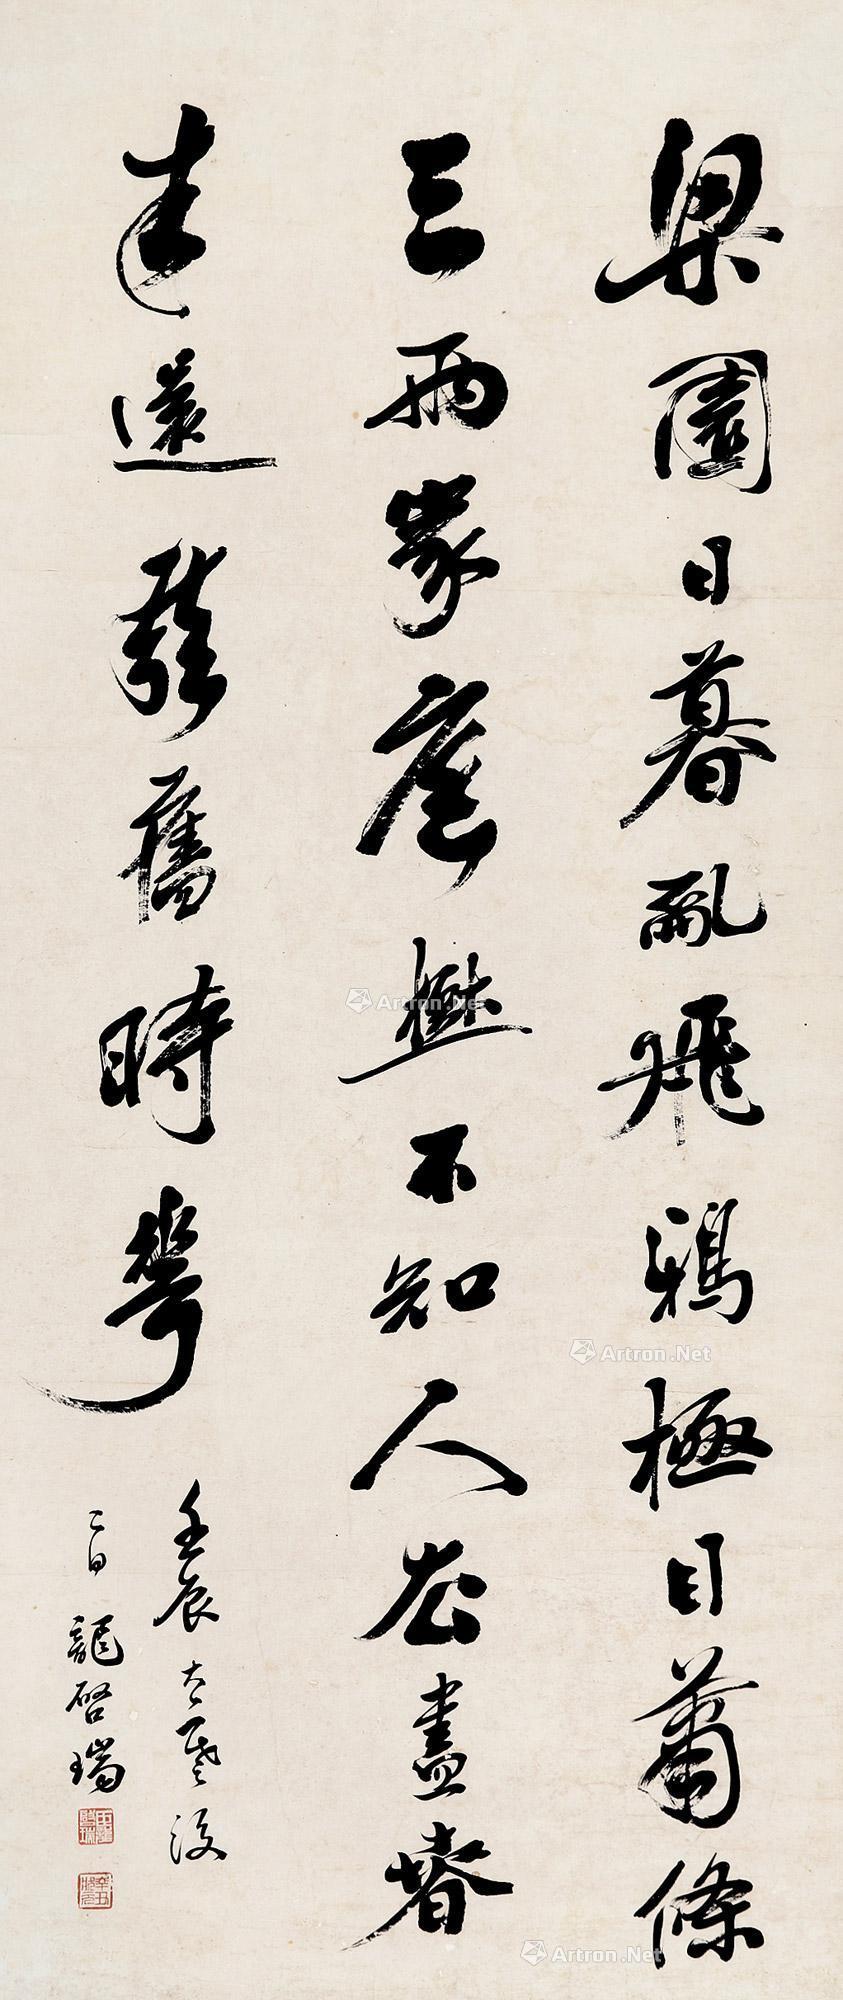 梁園日暮亂飛鴉極目蕭條
三兩家庭樹不知人去盡春
來還發舊時花
壬辰大暑後
二日龍啓瑞
Artron.Net
Artron.Net
Artron.Net